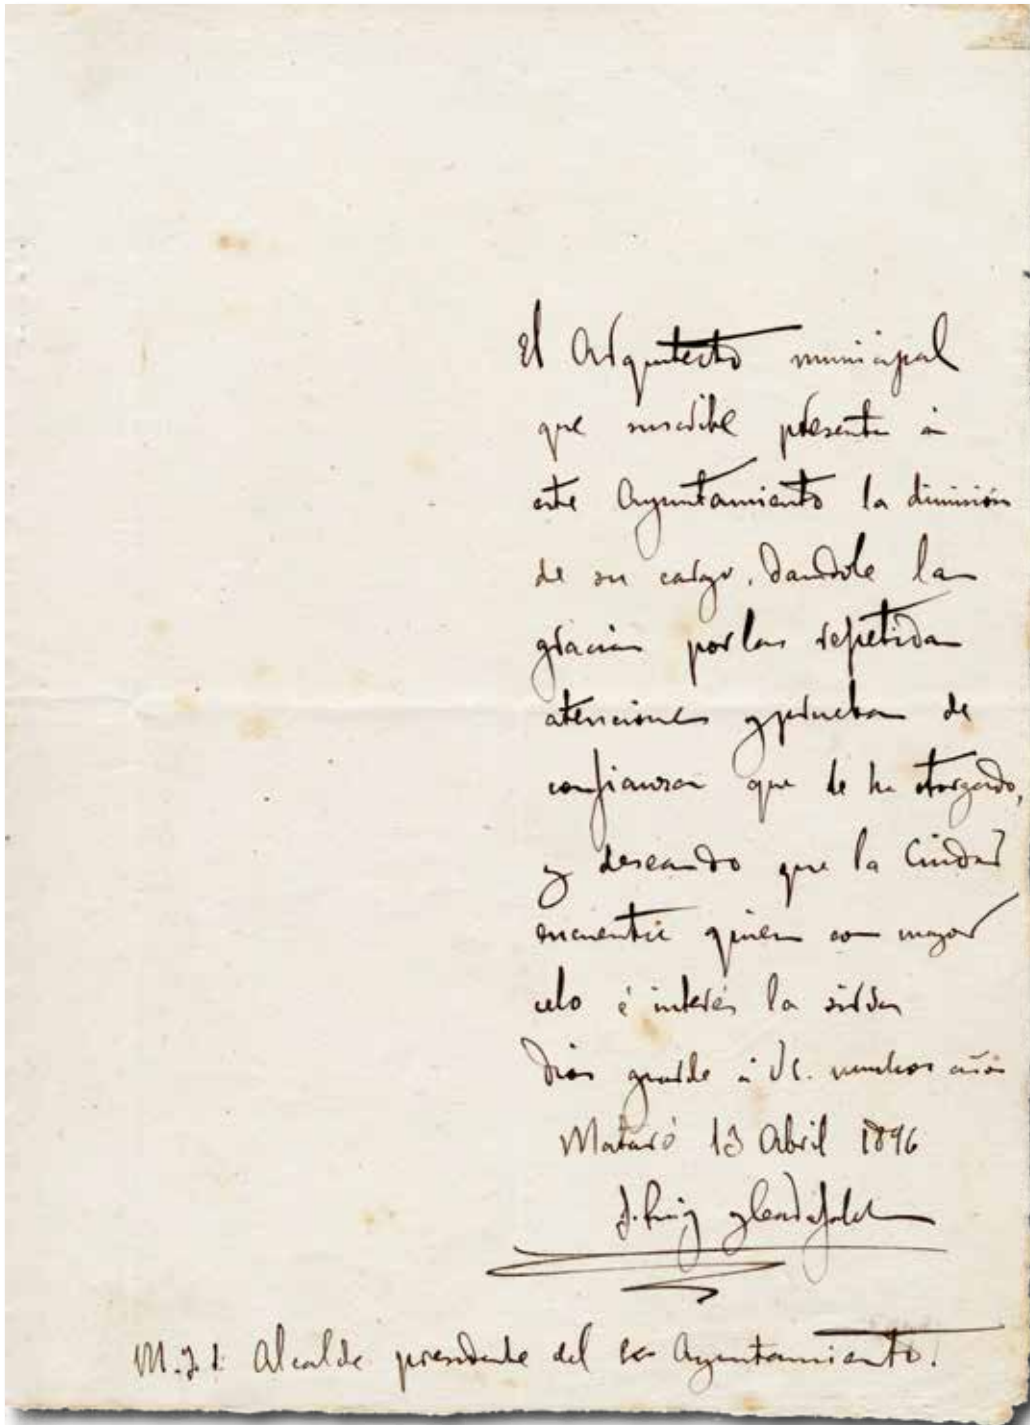 El Arquitecto municipal
que suscribe presenta á
este Ayuntamiento la dimisión
de su cargo, dandole las
gracias por las repetidas
atenciones y pruebas de
confianza que le ha otorgado,
y deseando que la Ciudad
encuentre quien con mayor
celo é interés la sirva
Dios guarde á VS. muchos años
Mataró 13 Abril 1896
J. Puig y Cadafalch
M. I. S. Alcalde presidente del Ayuntamiento.